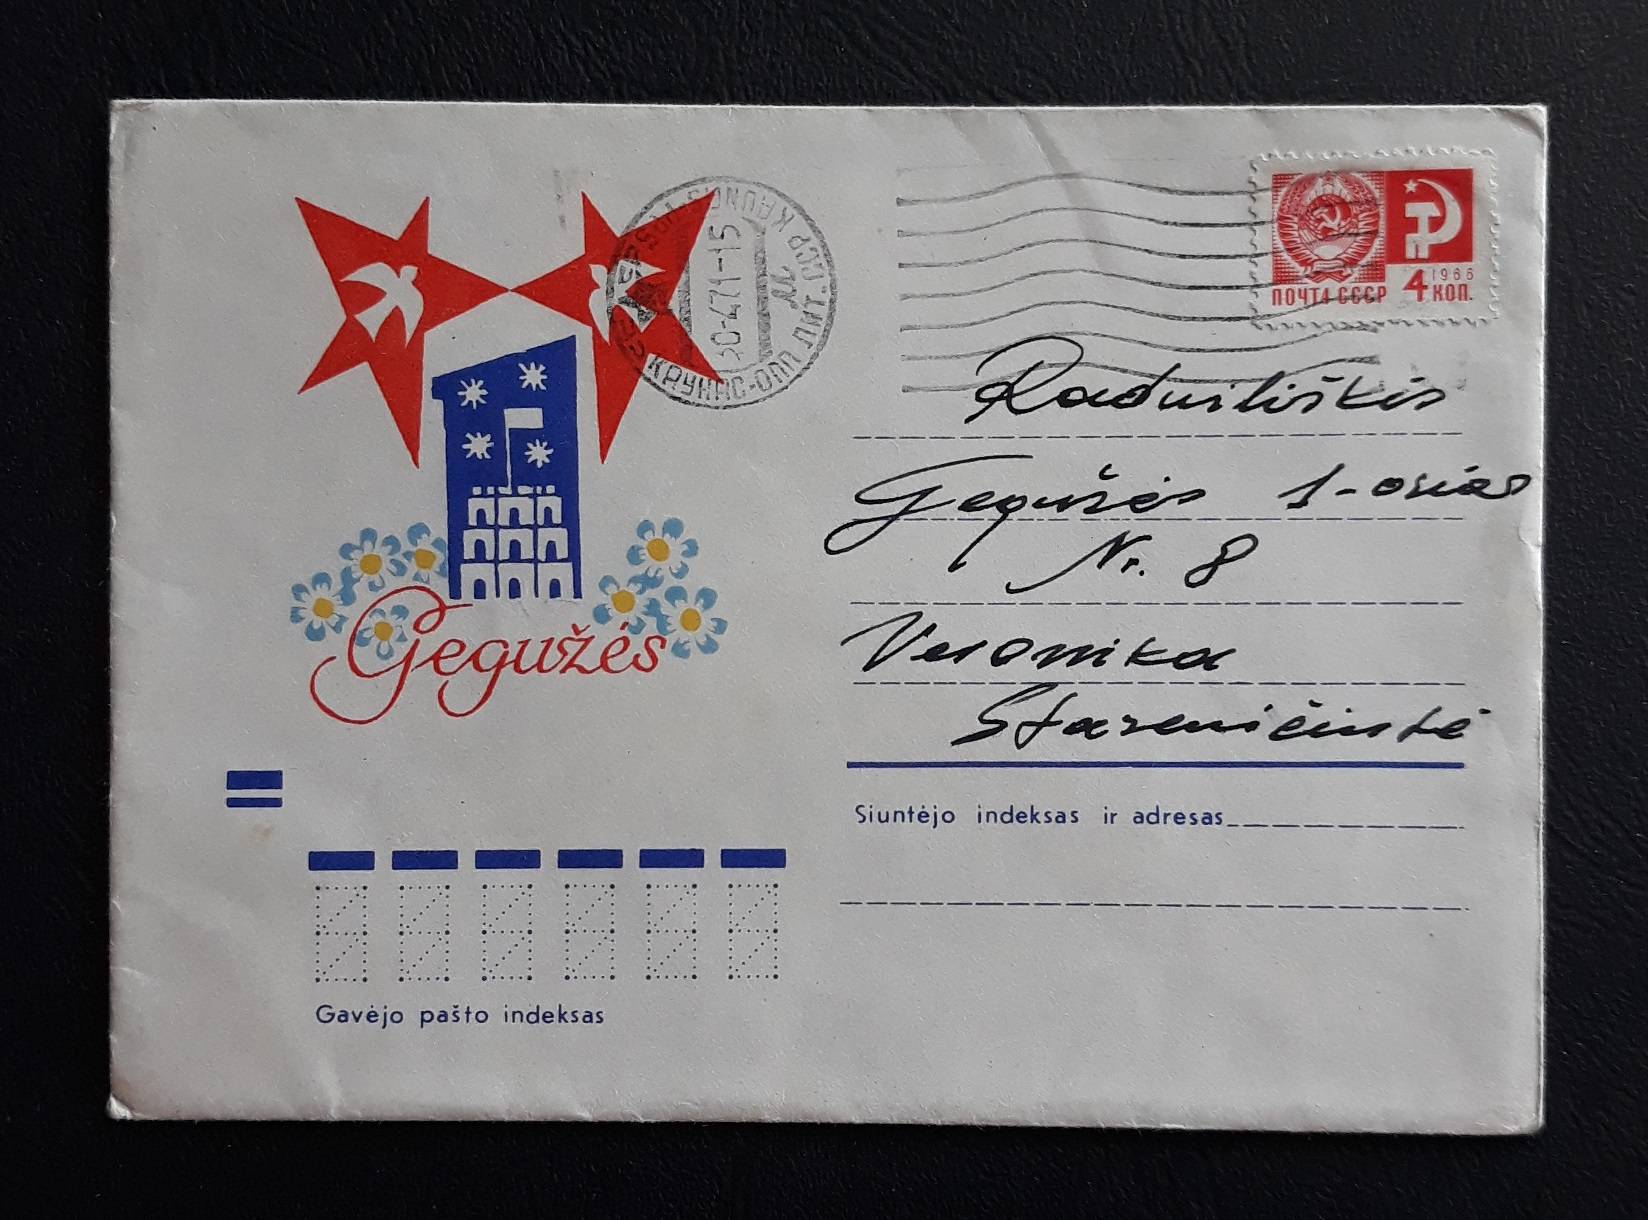 ПОЧТА СССР 4 1966 КОП.
30-471-15
КАУНАС-ОПП ЛИТ.ССР KAUNAS
Raduiliškis
Gegužės 1-osios
Nr. 8
Veronika
Gegužės
Siuntėjo indeksas ir adresas
Gavėjo pašto indeksas